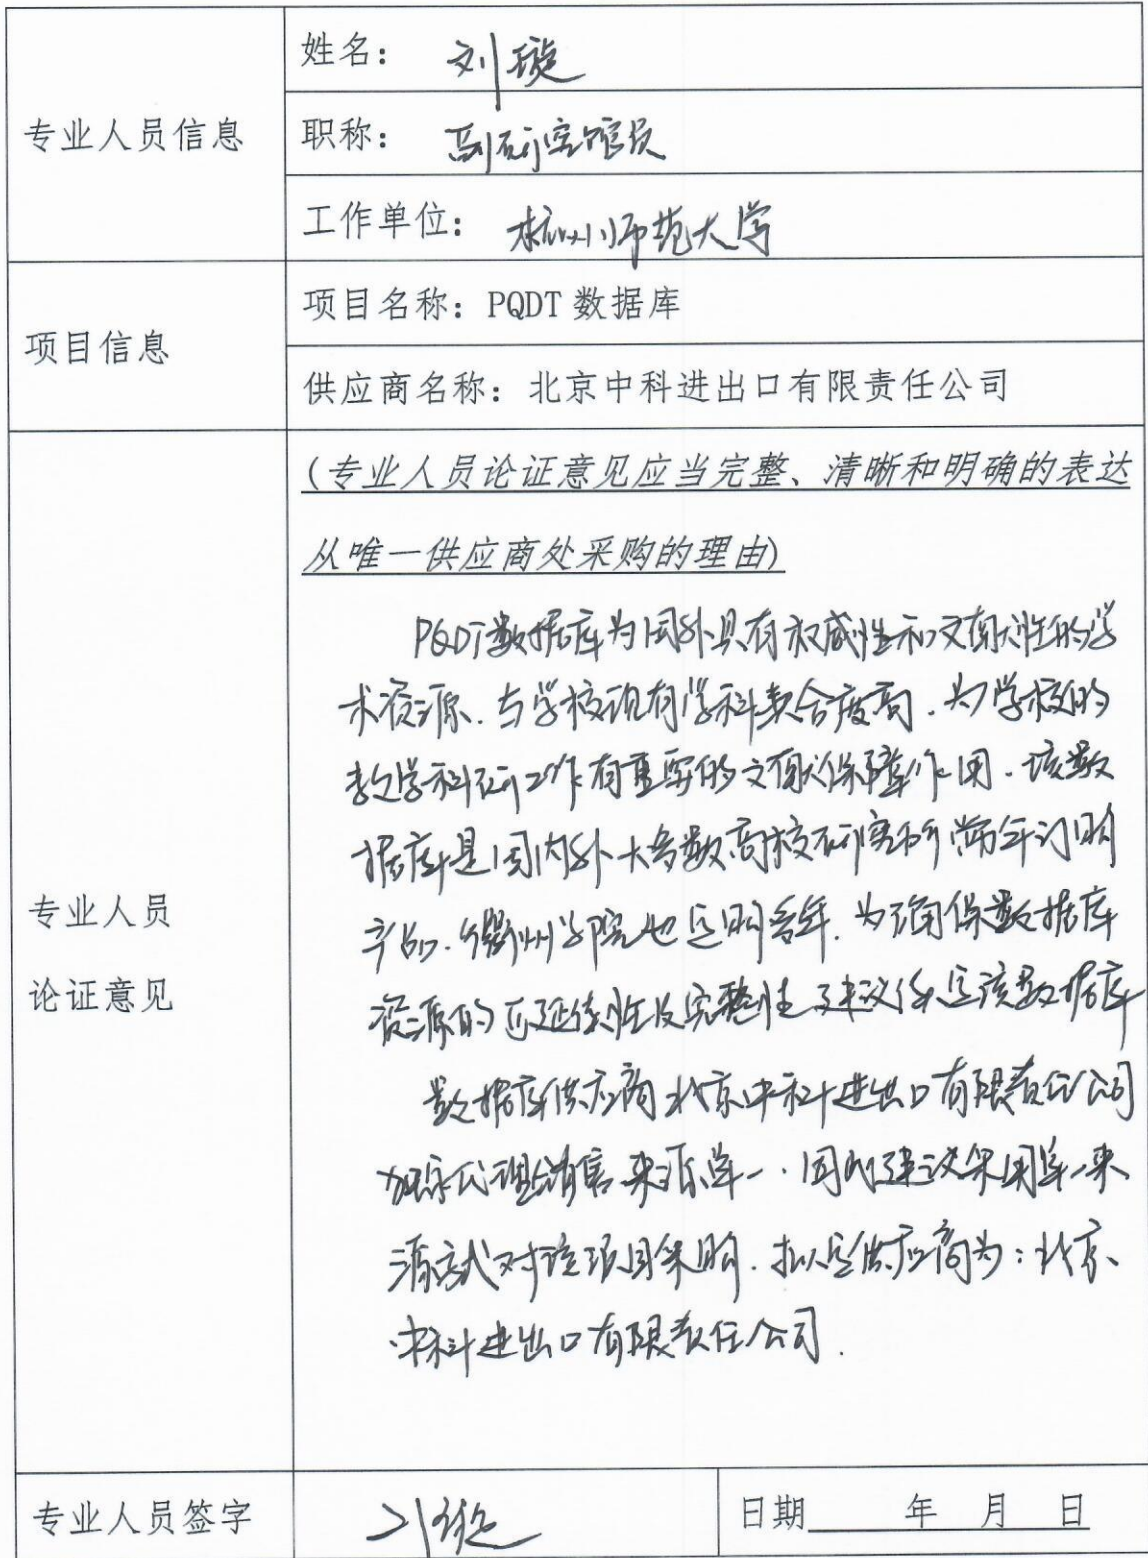 姓名：刘璇
专业人员信息
职称：副研究馆员
工作单位：杭州师范大学
项目名称：PQDT 数据库
项目信息
供应商名称：北京中科进出口有限责任公司
(专业人员论证意见应当完整、清晰和明确的表达
从唯一供应商处采购的理由)
PQDT数据库为国外具有权威性和文献性的学
术资源.与学校现有学科契合度高.为学校的
教学科研工作有重要的文献保障作用.该数
据库是国内外大多数高校研究所常年订购
产品.衢州学院也已购多年.为确保数据库
资源的可延续性及完整性建议续定该数据库
数据库供应商北京中科进出口有限责任公司
独家代理销售来源单一.因此建议采用单一来
源方式对该项目采购.拟定供应商为：北京、
中科进出口有限责任公司.
专业人员
论证意见
专业人员签字 刘璇 日期 年 月 日